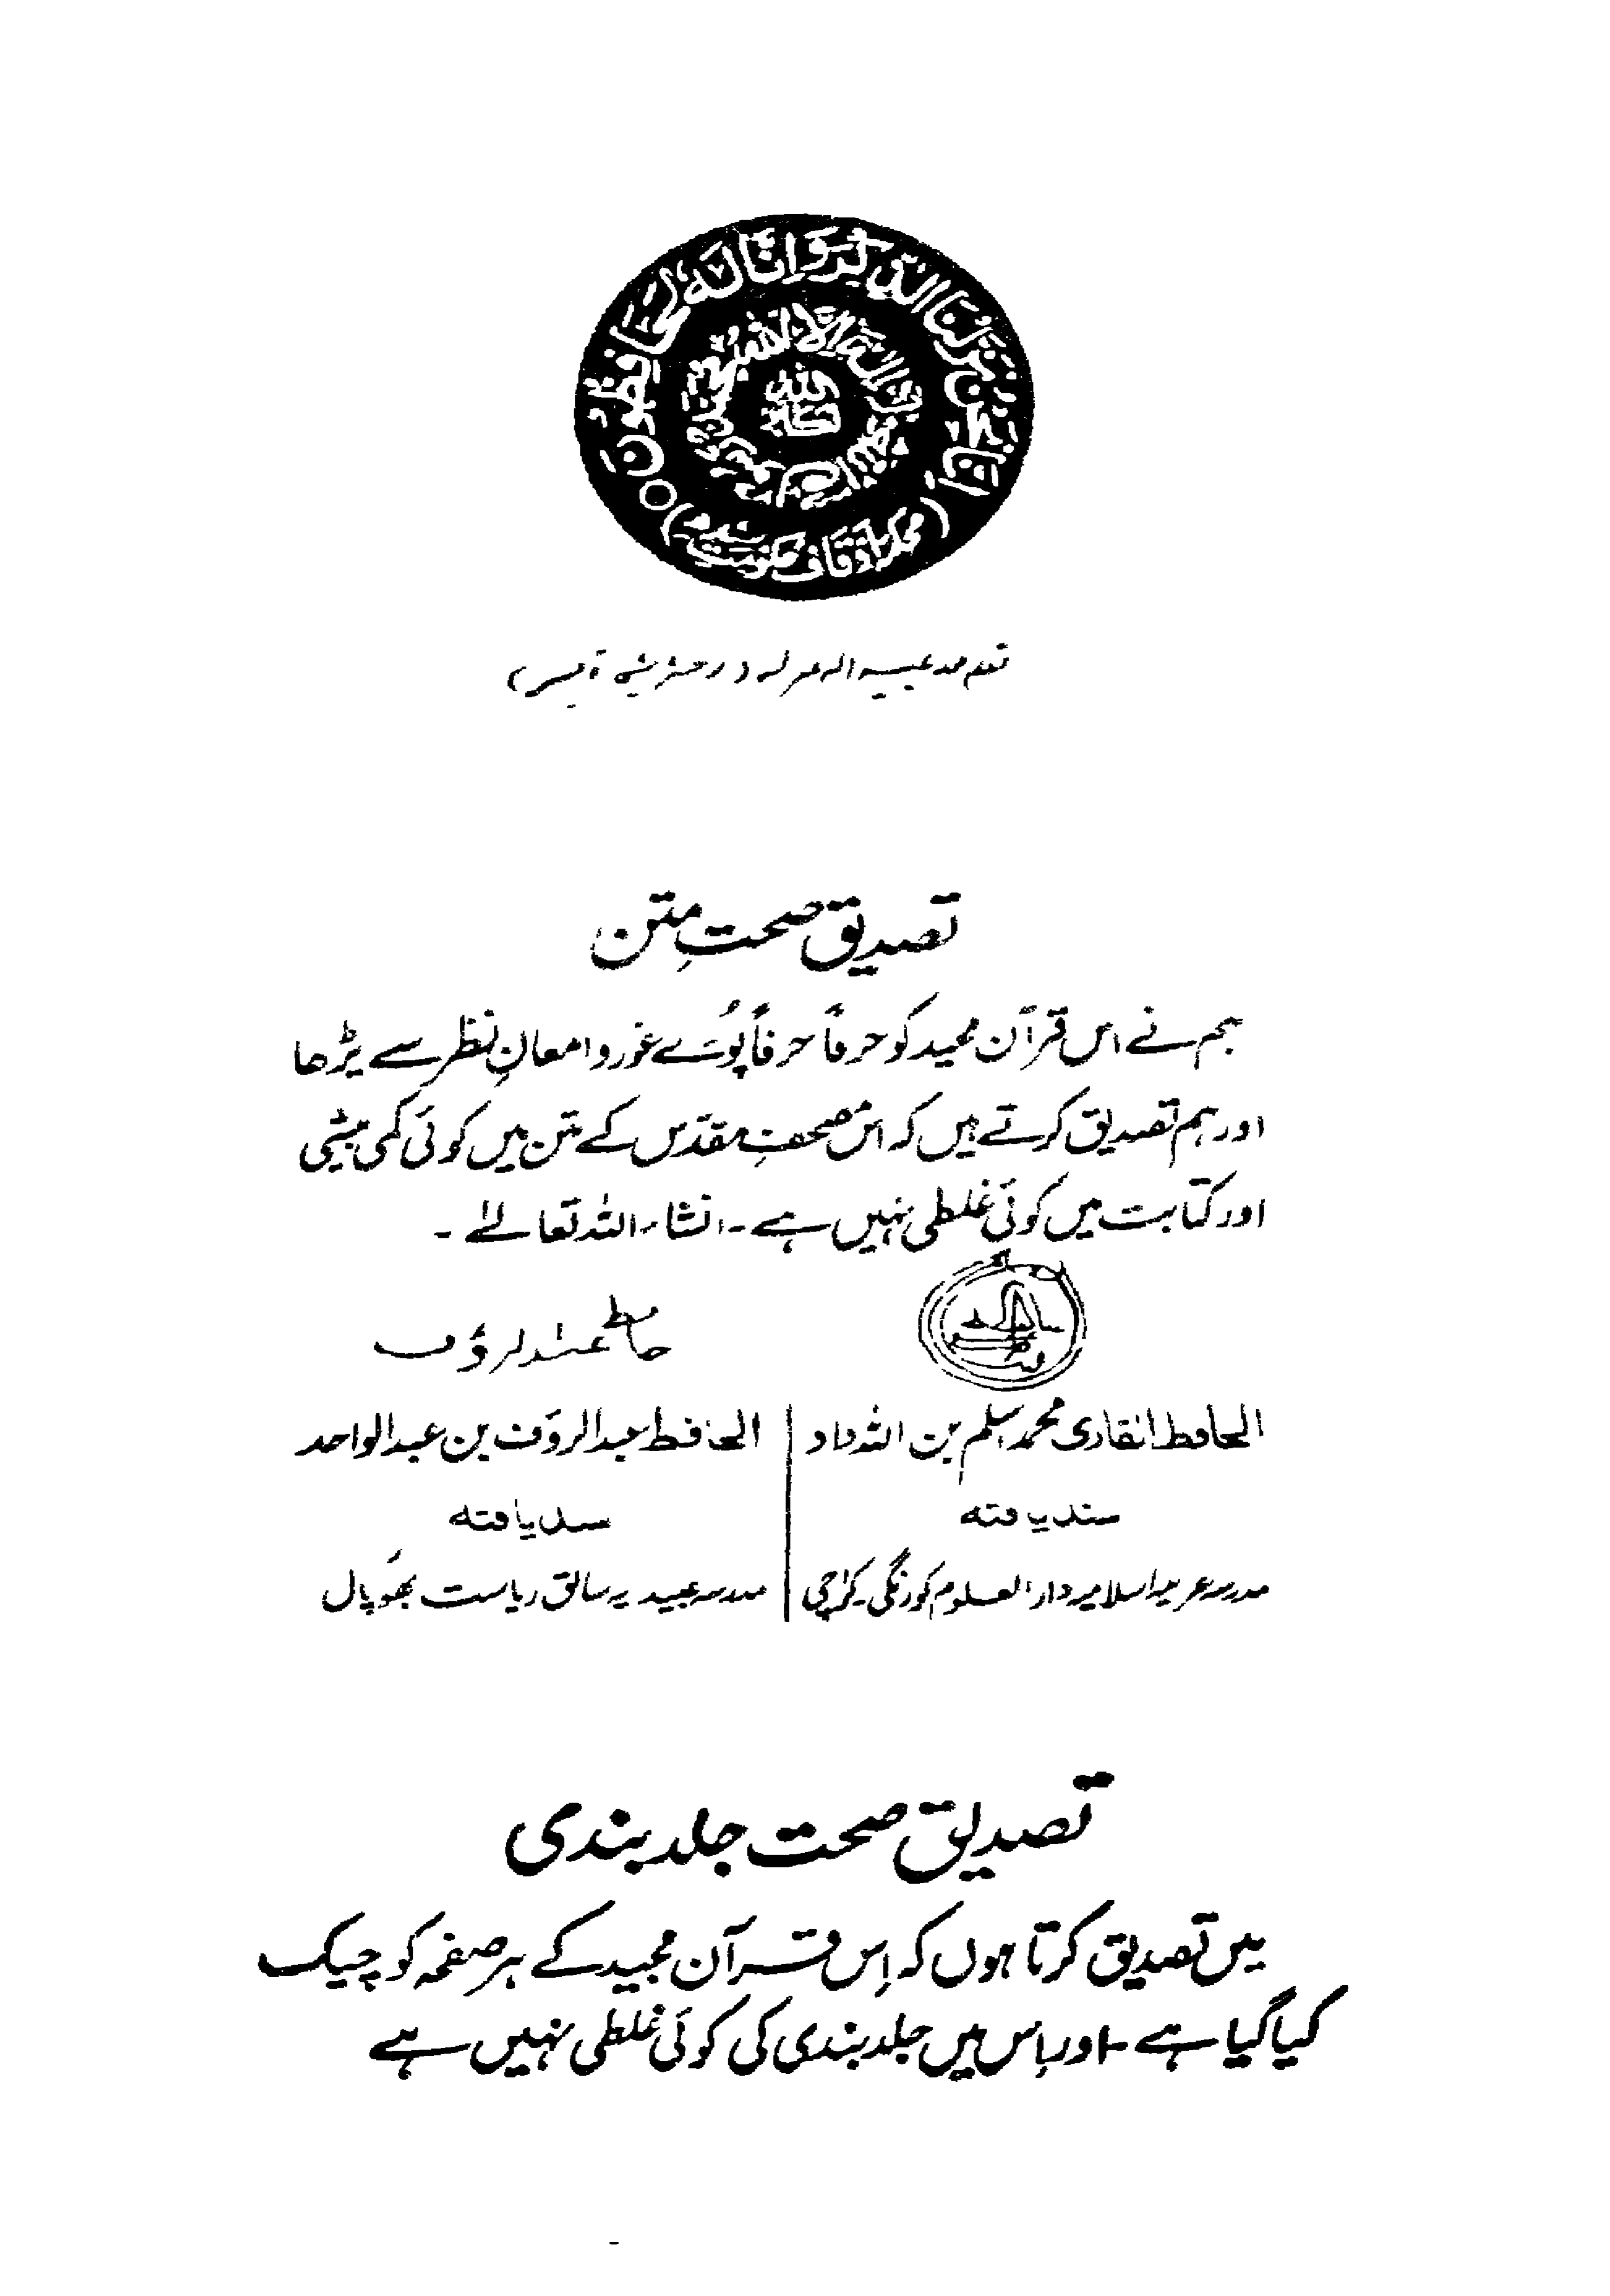 انا نحن نزلنا الذكر وانا له لحافظون
(محکمہ اوقاف حکومت سندھ)
تصدیق صحتِ متن
ہم نے اس قرآن مجید کو حرفاً حرفاً پُورے غور و امعانِ نظر سے پڑھا
اور ہم تصدیق کرتے ہیں کہ اس مصحفِ مقدس کے متن میں کوئی کمی بیشی
اور کتابت میں کوئی غلطی نہیں ہے ۔ انشاء اللہ تعالےٰ ۔
حافظ عبدالرؤف
الحافظ القاری محمد اسلم بن اللہ داد
سند یافتہ
مدرسہ عربیہ اسلامیہ دارالعلوم کورنگی ۔ کراچی
الحافظ عبدالرؤف بن عبدالواحد
سند یافتہ
مدرسہ عبیدیہ سابق ریاست بھوپال
تصدیق صحت جلد بندی
میں تصدیق کرتا ہوں کہ اِس قرآن مجید کے ہر صفحہ کو چیک
کیا گیا ہے ۔ اور اِس میں جلد بندی کی کوئی غلطی نہیں ہے